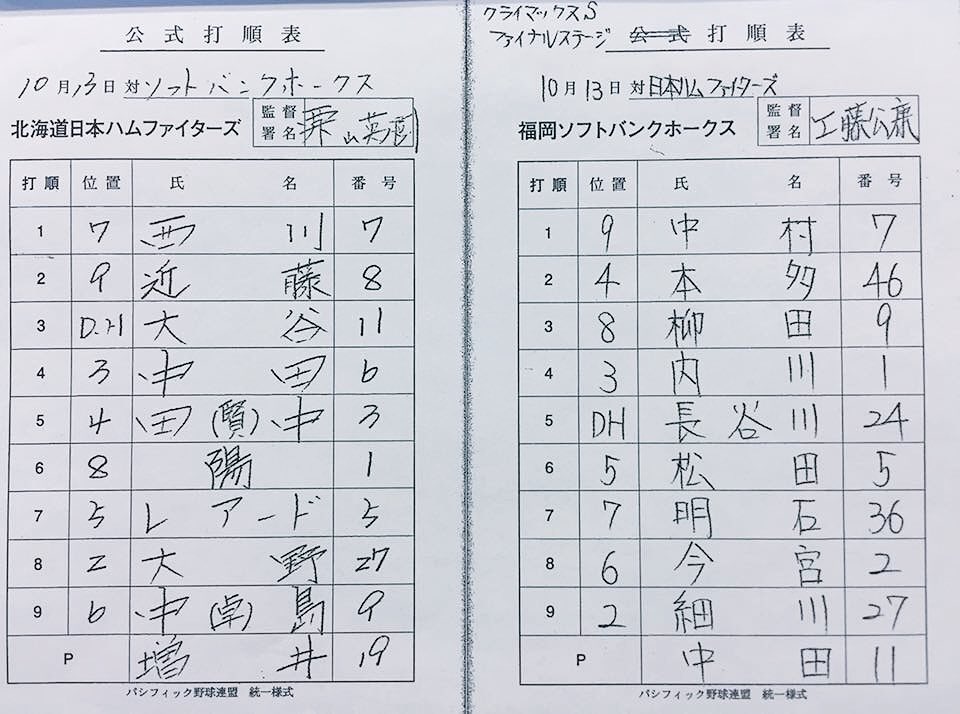 公式打順表
10月13日対ソフトバンクホークス
北海道日本ハムファイターズ 監督署名 栗山英樹
打順 位置 氏名 番号
1 7 西川 7
2 9 近藤 8
3 D.H 大谷 11
4 3 中田 6
5 4 田(賢)中 3
6 8 陽 1
7 5 レアード 5
8 2 大野 27
9 6 中(卓)島 9
P 増井 19
パシフィック野球連盟 統一様式
クライマックスS
ファイナルステージ 公式打順表
10月13日対日本ハムファイターズ
福岡ソフトバンクホークス 監督署名 工藤公康
打順 位置 氏名 番号
1 9 中村 7
2 4 本多 46
3 8 柳田 9
4 3 内川 1
5 DH 長谷川 24
6 5 松田 5
7 7 明石 36
8 6 今宮 2
9 2 細川 27
P 中田 11
パシフィック野球連盟 統一様式